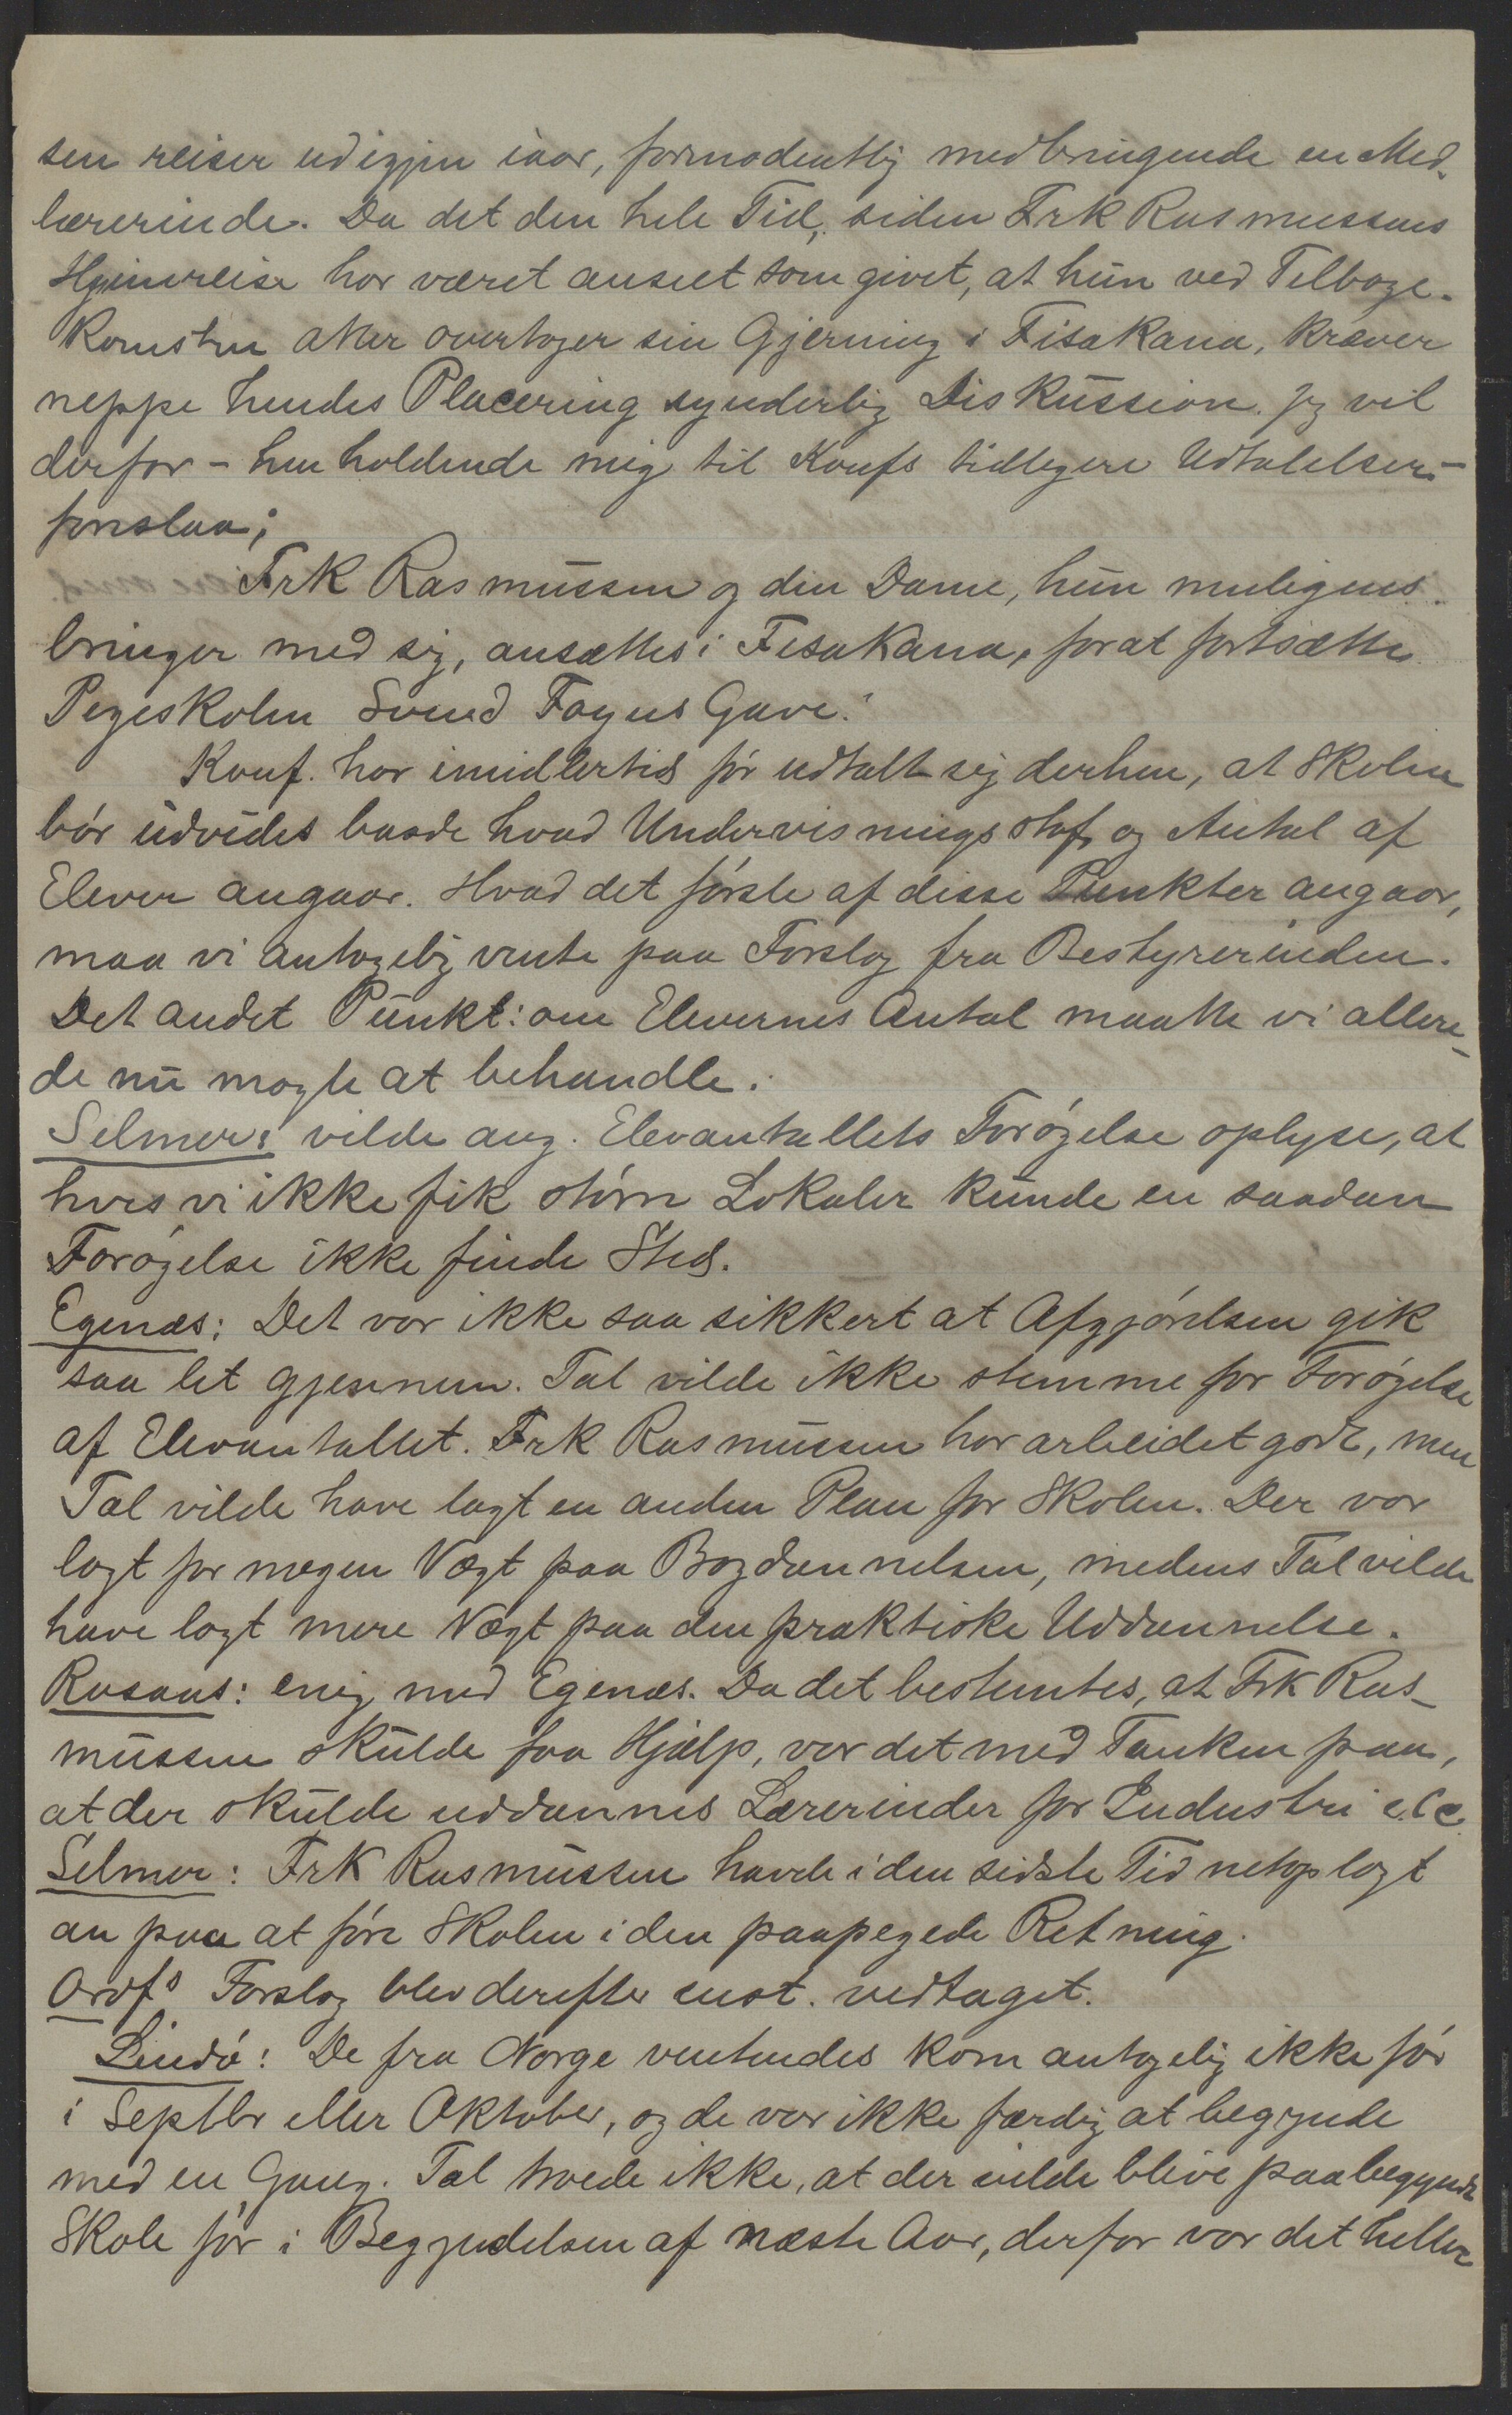 sen reiser ud igjen iaar, formodentlig medbringende en Med-
lærerinde. Da det den hele Tid, siden Frk Rasmussens
Hjemreise har været anseet som givet, at hun ved Tilbage-
komsten atter overtager sin Gjerning i Fisakana, kræver
neppe hendes Placering synderlig Diskussion. Jeg vil
derfor - henholdende mig til Konfs tidligere Udtalelser -
foreslaa;
Frk Rasmussen og den Dame, hun muligens
bringer med sig, ansættes i Fisakana, forat fortsætte
Pigeskolen Svend Foyns Gave.
Konf. har imidlertid før udtalt sig derhen, at Skolen
bør udvides baade hvad Undervisningsstof og Antal af
Elever angaar. Hvad det første af disse Punkter angaar,
maa vi antagelig vente paa Forslag fra Bestyrerinden.
Det andet Punkt: om Elevernes Antal maatte vi allere-
de nu magte at behandle.
Selmer: vilde ang. Elevantallets Forøgelse oplyse, at
hvis vi ikke fik større Lokaler kunde en saadan
Forøgelse ikke finde Sted.
Egenæs: Det var ikke saa sikkert at Afgjørelsen gik
saa let gjennem. Tal vilde ikke stemme for Forøgelse
af Elevantallet. Frk Rasmussen har arbeidet godt, men
Tal vilde have lagt en anden Plan for Skolen. Der var
lagt for megen Vægt paa Bogdannelsen, medens Tal vilde
have lagt mere Vægt paa den praktiske Uddannelse.
Rosaas: enig med Egenæs. Da det bestemtes, at Frk Ras-
mussen skulde faa Hjælp, var det med Tanken paa,
at der skulde uddannes Lærerinder for Industri etc
Selmer: Frk Rasmussen havde i den sidste Tid netop lagt
an paa at føre Skolen i den paapegede Retning.
Ordfs Forslag blev derefter enst. vedtaget.
Lindø: De fra Norge ventendes kom antagelig ikke før
i Septbr eller Oktober, og de var ikke færdig at begynde
med en Gang. Tal troede ikke, at der vilde blive paabegyndt
Skole før i Begyndelsen af næste Aar, derfor var det heller